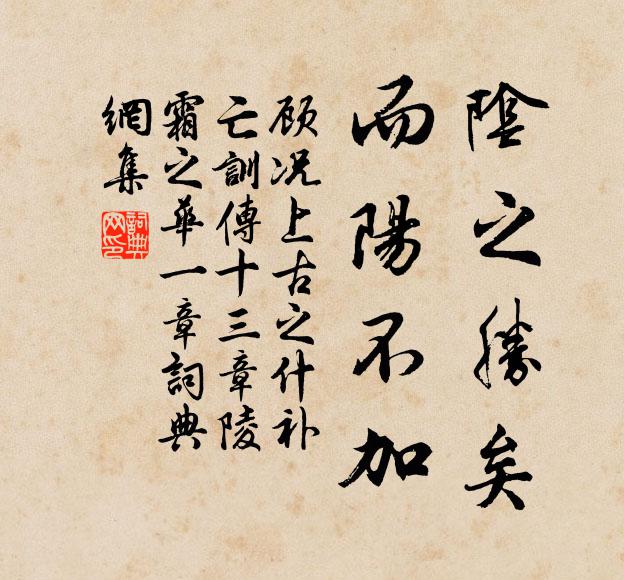 陰之勝矣
而陽不加
顾况上古之什补
亡訓傳十三章陵
霜之華一章詞典
網集
詞典
网印